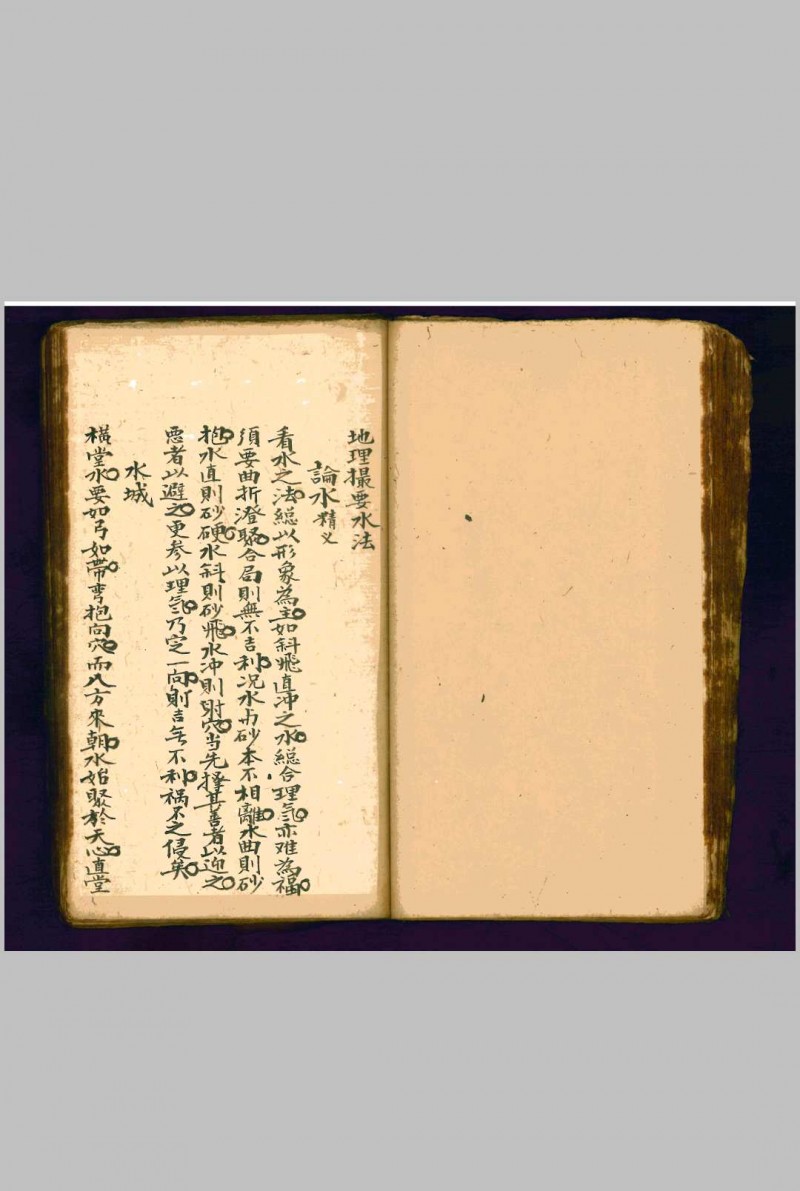 地理撮要水法
論水精义
看水之法總以形象為主如斜飛直冲之水總合理氣亦难為福
須要曲折澄聚合局則無不吉利况水与砂本不相離水曲則砂
抱水直則砂硬水斜則砂飛水冲則射穴当先擇其善者以迎之
恶者以避之更参以理氣乃定一向則吉无不利祸不之侵矣
水城
横堂水要如弓如帶弯抱向穴而八方來朝水始聚於天心直堂